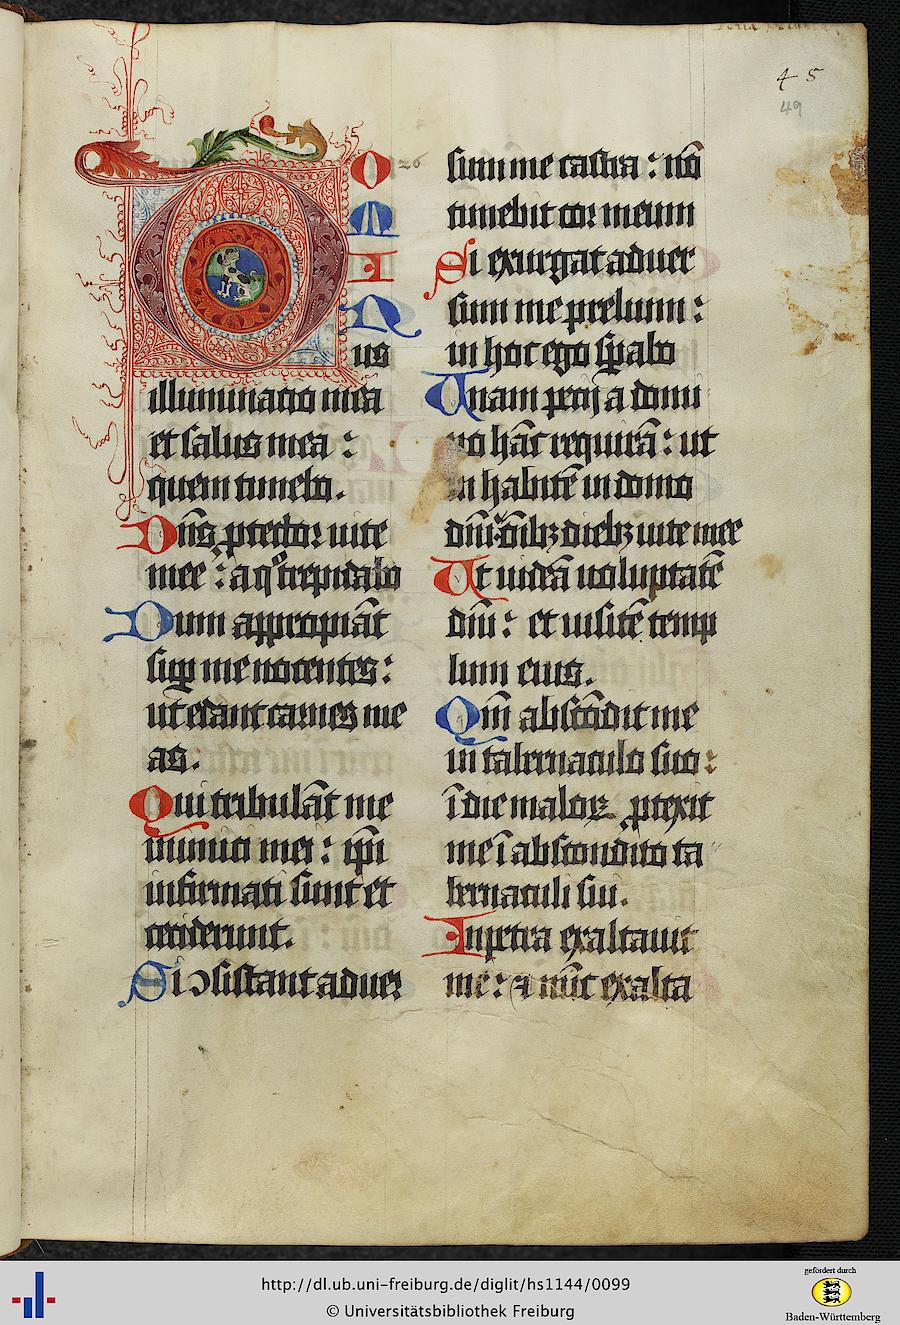 45
49
D O 26
M
I
N
us
illuminatio mea
et salus mea :
quem timebo.
Dn̄s ꝓtector uite
mee : a qͦ trepidabo
Dum appropiāt
suꝑ me nocentes :
ut edant carnes me
as.
Qui tribulāt me
inimici mei : ip̄i
infirmati sunt et
ceciderunt.
Si ↄsistant aduer
sum me castra : nō
timebit cor meum
Si exurgat aduer
sum me prelium :
in hoc ego sꝑabo
Unam pecij a domi
no hāc requirā : ut
in habitē in domo
dn̄i oīb dieb uite mee
Ut uideā uoluptatē
dn̄i : et uisitē temp
lum eius.
Qm̄ abscōdit me
in tabernaculo suo :
ī die maloꝝ ꝓtexit
me ī abscondito ta
bernaculi sui.
In petra exaltauit
me : ⁊ nūc exalta
http://dl.ub.uni-freiburg.de/diglit/hs1144/0099
© Universitätsbibliothek Freiburg
gefördert durch
Baden-Württemberg